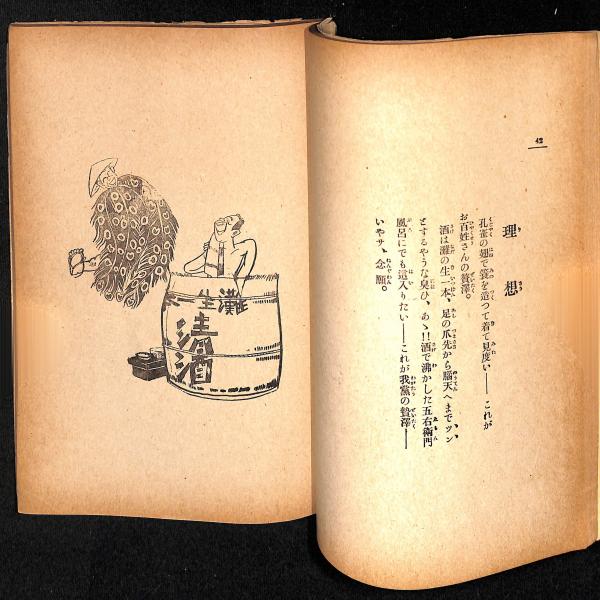 42
理想
孔雀の翅で蓑を造つて着て見度い――これが
お百姓さんの贅澤。
酒は灘の生一本、足の爪先から腦天へまで、ツン
とするやうな臭ひ、あゝ!!酒で沸かした五右衛門
風呂にでも這入りたい――これが我黨の贅澤――
いやサ、念願。
灘生一本
清酒